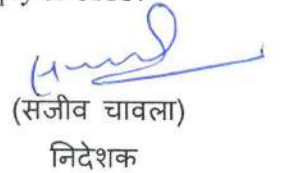 (संजीव चावला)
निदेशक